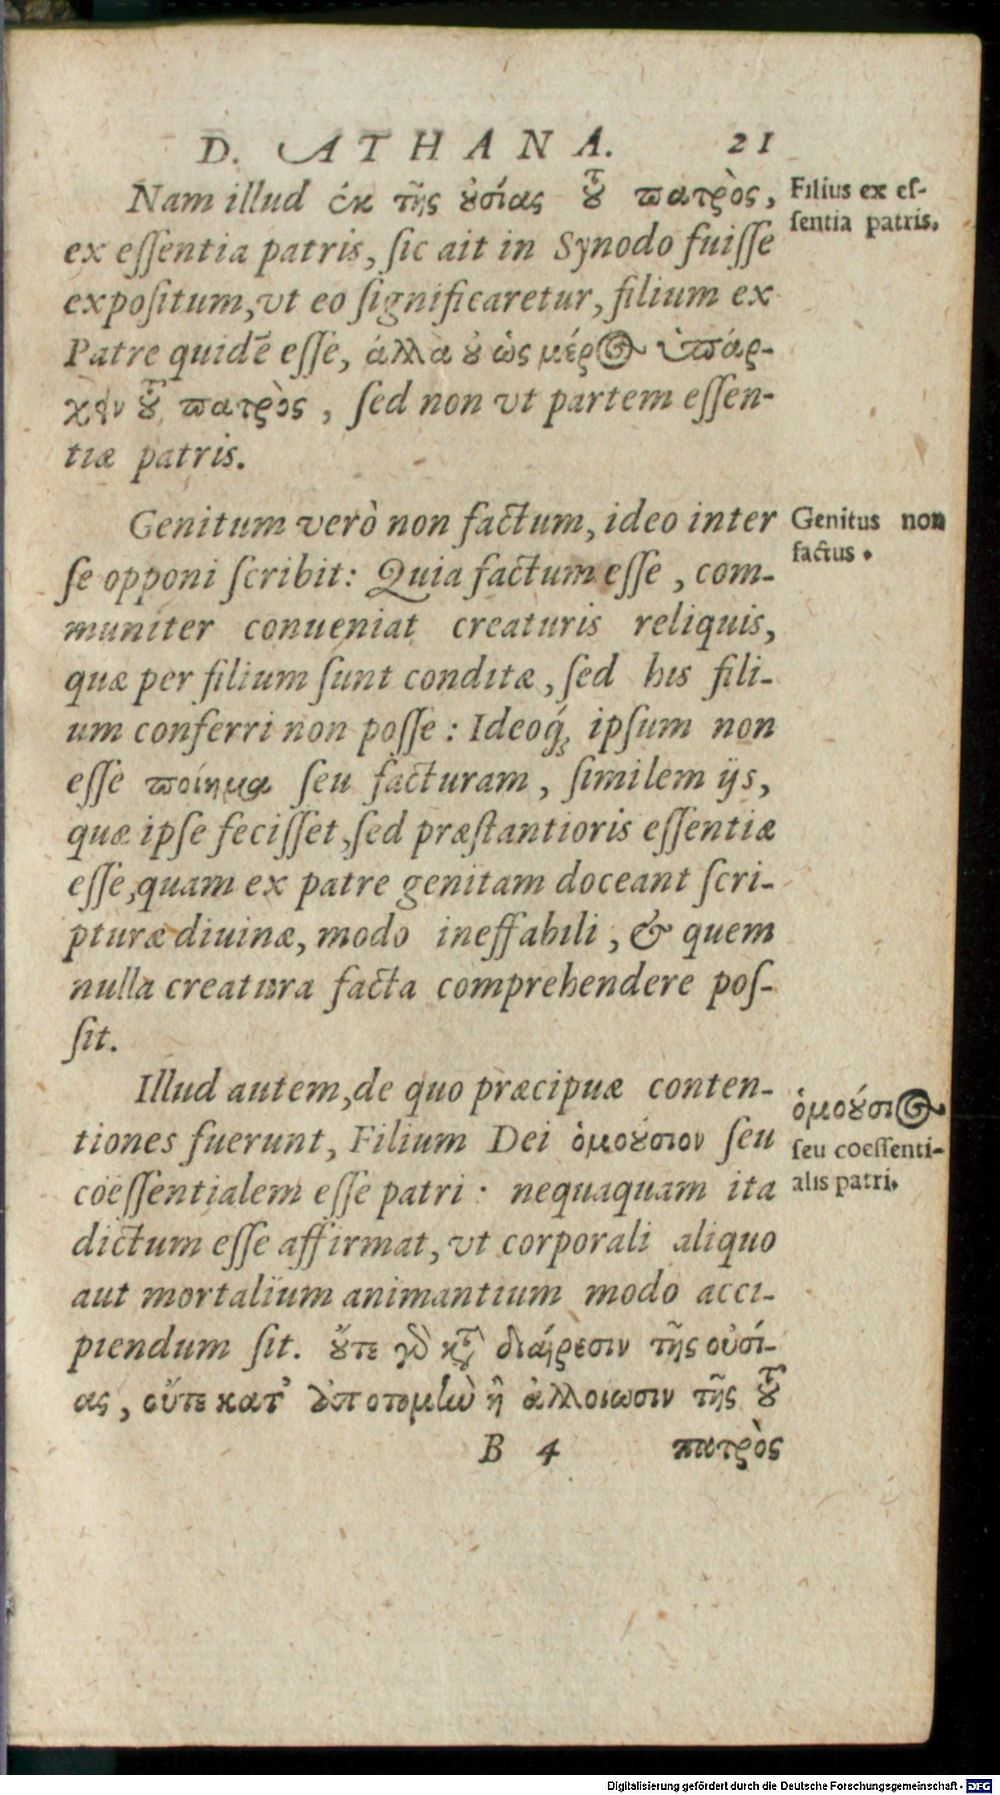 D. ATHANA. 21
Nam illud ἐκ τῆς ȣσίας τȣ͂ πατρὸς,
Filius ex eſ-
ſentia patris.
ex eſſentia patris, ſic ait in Synodo fuiſſe
expoſitum, vt eo ſignificaretur, filium ex
Patre quidē eſſe, ἀλλὰ ȣ̓ ὡς μέρος ὑπάρ-
χειν τȣ͂ πατρὸς, ſed non vt partem eſſen-
tiæ patris.
Genitum verò non factum, ideo inter
Genitus non
factus.
ſe opponi ſcribit: Quia factum eſſe, com-
muniter conueniat creaturis reliquis,
quæ per filium ſunt conditæ, ſed his fili-
um conferri non poſſe: Ideoq́; ipſum non
eſſe ποίημα ſeu facturam, ſimilem ijs,
quæ ipſe feciſſet, ſed præſtantioris eſſentiæ
eſſe, quam ex patre genitam doceant ſcri-
pturæ diuinæ, modo ineffabili, & quem
nulla creatura facta comprehendere poſ-
ſit.
Illud autem, de quo præcipuæ conten-
ὁμούσιος
ſeu coeſſenti-
alis patri.
tiones fuerunt, Filium Dei ὁμούσιον ſeu
coeſſentialem eſſe patri: nequaquam ita
dictum eſſe affirmat, vt corporali aliquo
aut mortalium animantium modo acci-
piendum ſit. ȣ̓́τε γὰρ κατὰ διαίρεσιν τῆς οὐσί-
ας, οὔτε κατ᾽ ἀποτομὴν ἢ ἀλλοιωσιν τῆς τȣ͂
B 4 πατρὸς
Digitalisierung gefördert durch die Deutsche Forschungsgemeinschaft - DFG